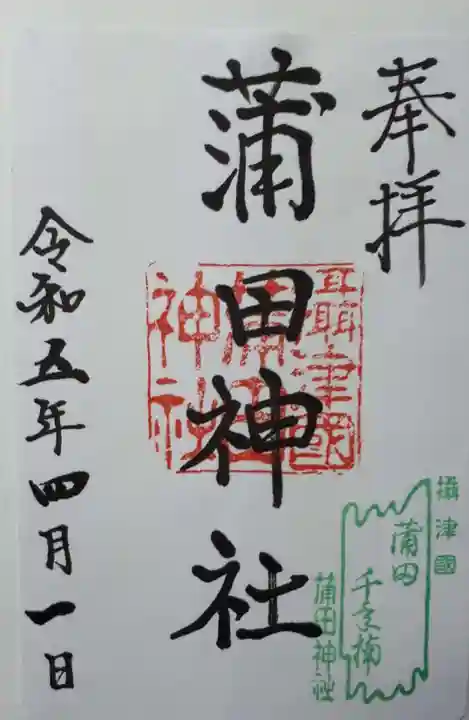 奉拝
蒲田神社
攝津國
蒲田
神社
令和五年四月一日
攝津國
蒲田
千意楠
蒲田神社